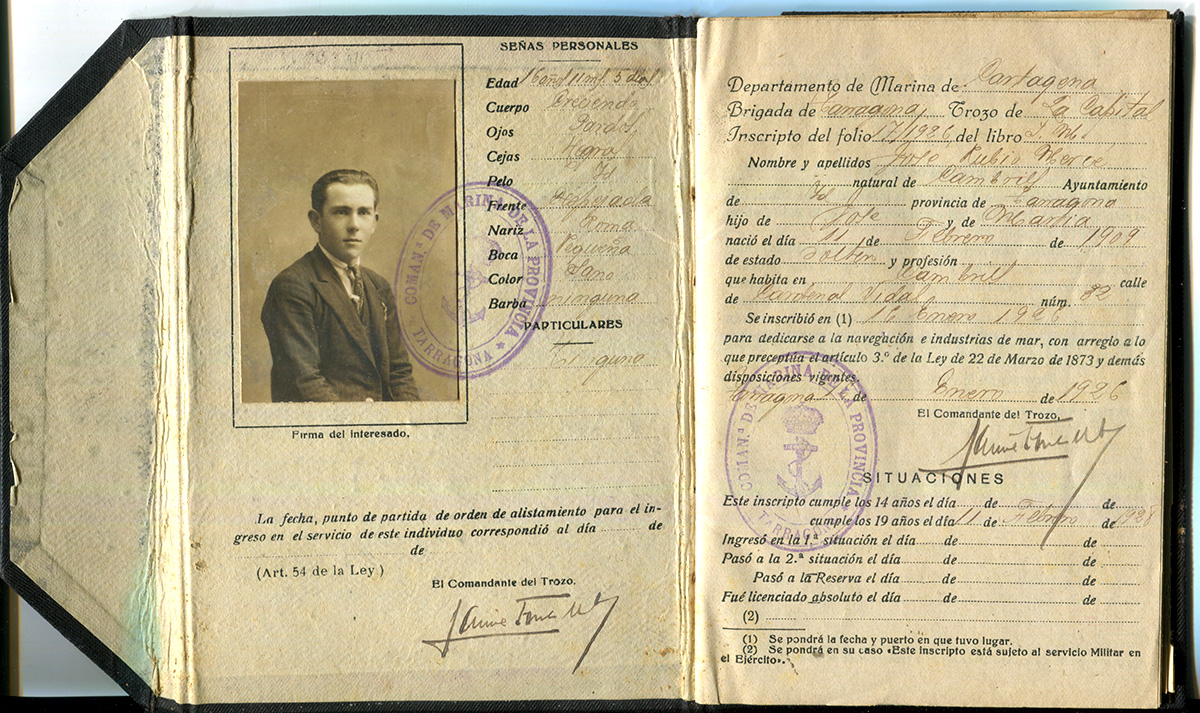 SEÑAS PERSONALES
Edad 16 añs 11 ms 5 días
Cuerpo Creciendo
Ojos Pardos
Cejas Negras
Pelo Id
Frente Despejada
Nariz Roma
Boca Pequeña
Color Sano
Barba ninguna
PARTICULARES
Ninguna
COMAN.ª DE MARINA DE LA PROVINCIA
TARRAGONA
Firma del interesado,
La fecha, punto de partida de orden de alistamiento para el in-
greso en el servicio de este individuo correspondió al día de
de
(Art. 54 de la Ley )
El Comandante del Trozo,
Departamento de Marina de: Cartagena
Brigada de Tarragona Trozo de La Capital
Inscripto del folio 17/1926 del libro
Nombre y apellidos José Rubio Mercé
natural de Cambrils Ayuntamiento
de Id provincia de Tarragona
hijo de José y de María
nació el día 11 de Febrero de 1909
de estado Solter y profesión
que habita en Cambrils calle
de Cardenal Vidal núm. 82
Se inscribió en (1) 16 Enero 1926
para dedicarse a la navegación e industrias de mar, con arreglo a lo
que preceptúa el artículo 3.º de la Ley de 22 de Marzo de 1873 y demás
disposiciones vigentes.
Tarragona de Enero de 1926
El Comandante del Trozo,
COMAN.ª DE MARINA DE LA PROVINCIA
TARRAGONA
SITUACIONES
Este inscripto cumple los 14 años el día de de
cumple los 19 años el día 11 de Febrero de 1928
Ingresó en la 1.ª situación el día de de
Pasó a la 2.ª situación el día de de
Pasó a la Reserva el día de de
Fué licenciado absoluto el día de de
(2)
(1) Se pondrá la fecha y puerto en que tuvo lugar.
(2) Se pondrá en su caso «Este inscripto está sujeto al servicio Militar en
el Ejército».